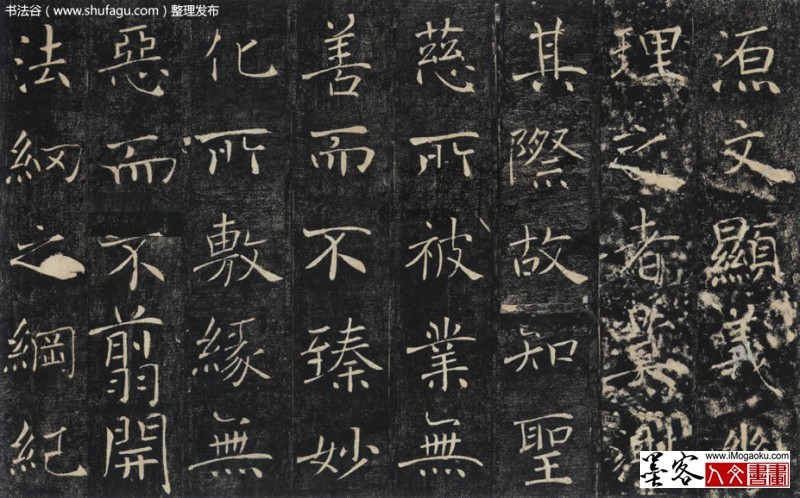 书法谷（www.shufagu.com）整理发布
源文顯義幽
理之者莫測
其際故知聖
慈所被業無
善而不臻妙
化所敷緣無
惡而不翦開
法網之綱紀
www.iMogaoku.com
墨客人文書畫